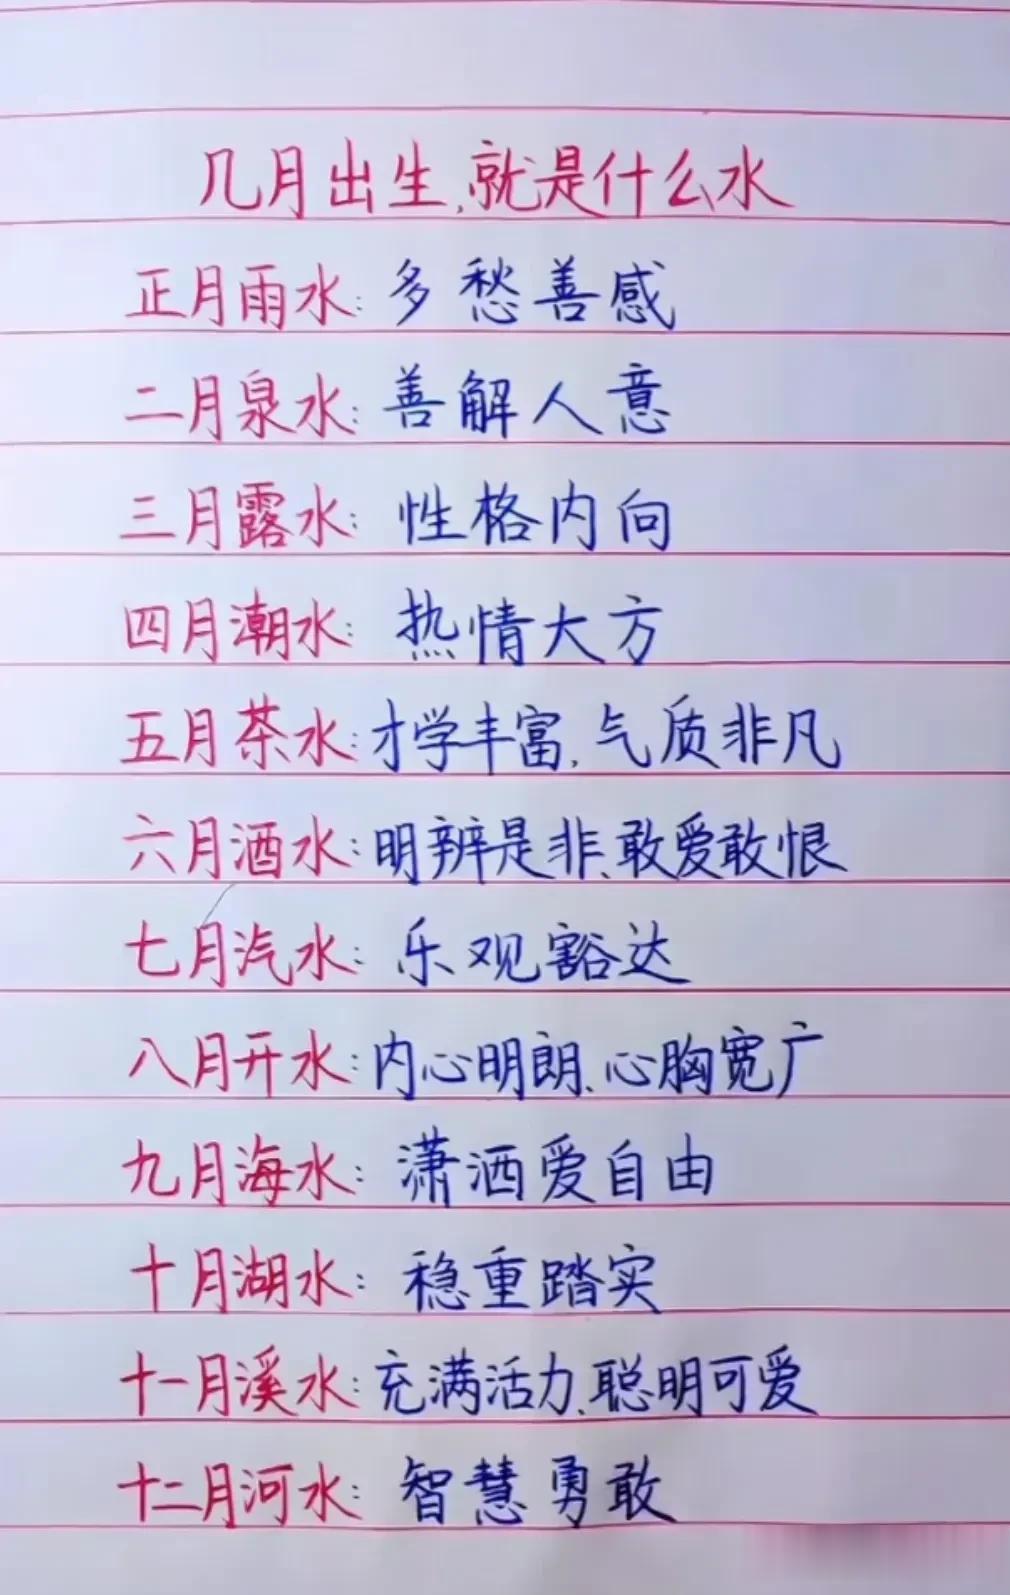 几月出生,就是什么水
正月雨水:多愁善感
二月泉水:善解人意
三月露水:性格内向
四月潮水:热情大方
五月茶水:才学丰富,气质非凡
六月酒水:明辨是非、敢爱敢恨
七月汽水:乐观豁达
八月开水:内心明朗、心胸宽广
九月海水:潇洒爱自由
十月湖水:稳重踏实
十一月溪水:充满活力,聪明可爱
十二月河水:智慧勇敢